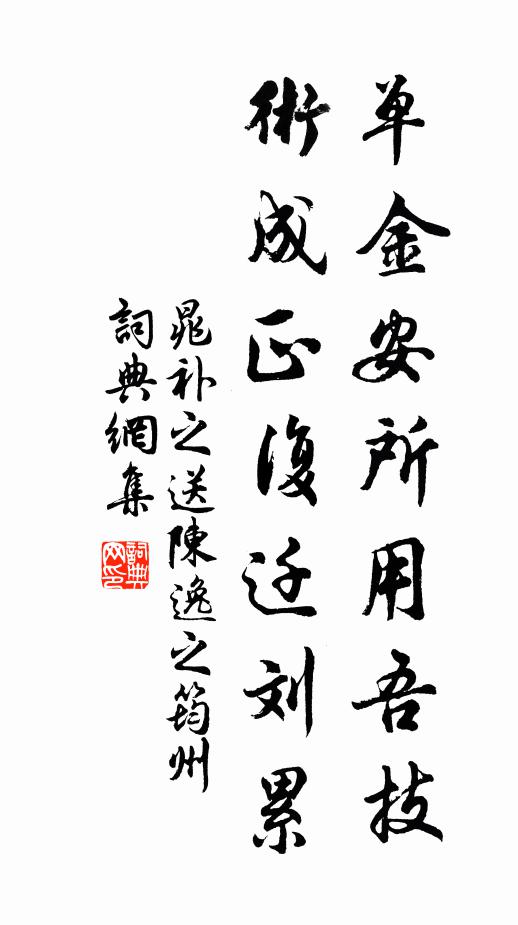 单金安所用吾技
術成正復迁刘累
晁补之送陳逸之筠州
詞典網集
詞典网印